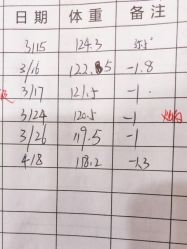 日期 体重 备注
3/15 124.3
3/16 122.85 -1.8
3/17 121.5 -1.
3/24 120.5 -1
3/26 119.5 -1
4/8 118.2 -1.3